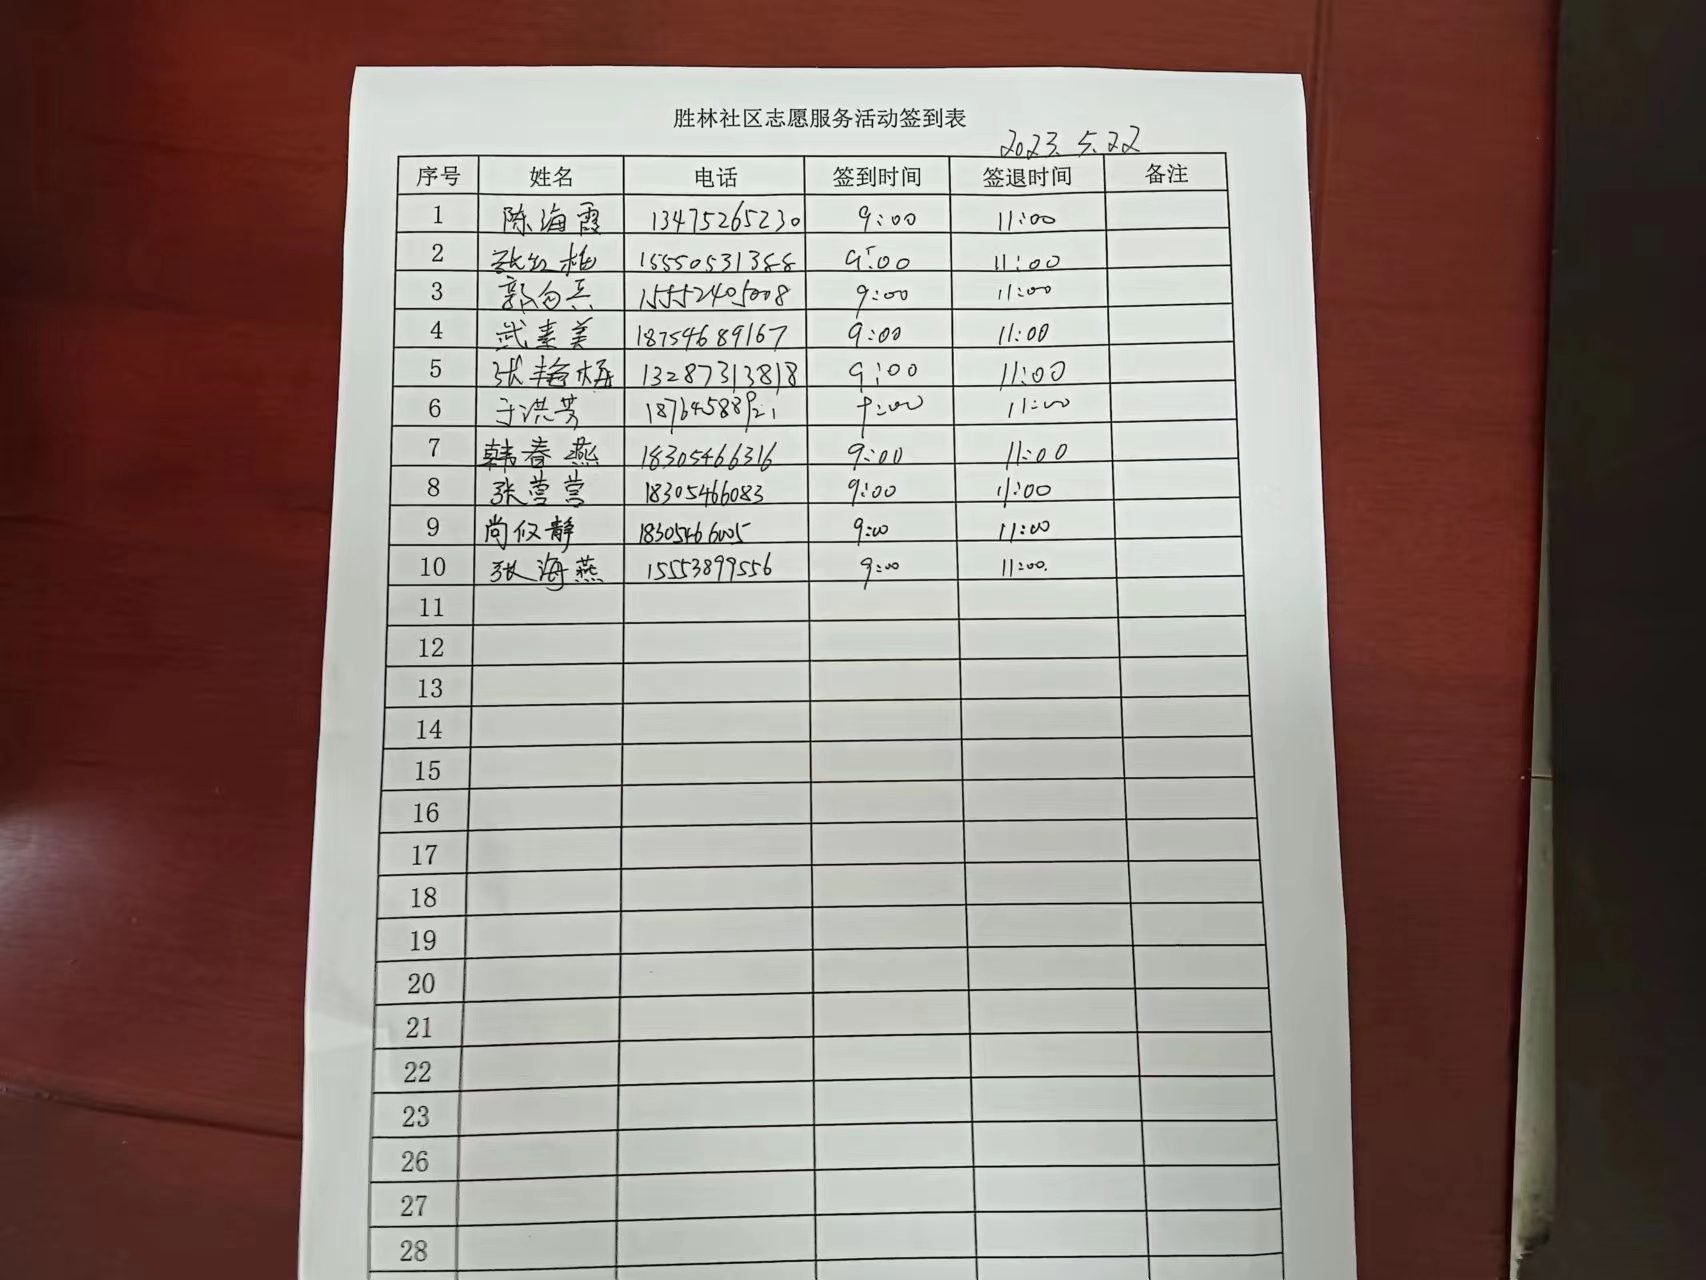 胜林社区志愿服务活动签到表
2023.5.22
序号 姓名 电话 签到时间 签退时间 备注
1 陈海霞 13475265230 9:00 11:00
2 张红梅 15550531388 9:00 11:00
3 15552405008 9:00 11:00
4 武素美 18754689167 9:00 11:00
5 张艳梅 13287313818 9:00 11:00
6 于洪芳 18764588921 9:00 11:00
7 韩春燕 18305466316 9:00 11:00
8 张营营 18305466083 9:00 11:00
9 尚仅静 18305466005 9:00 11:00
10 张海燕 15553899556 9:00 11:00.
11
12
13
14
15
16
17
18
19
20
21
22
23
26
27
28